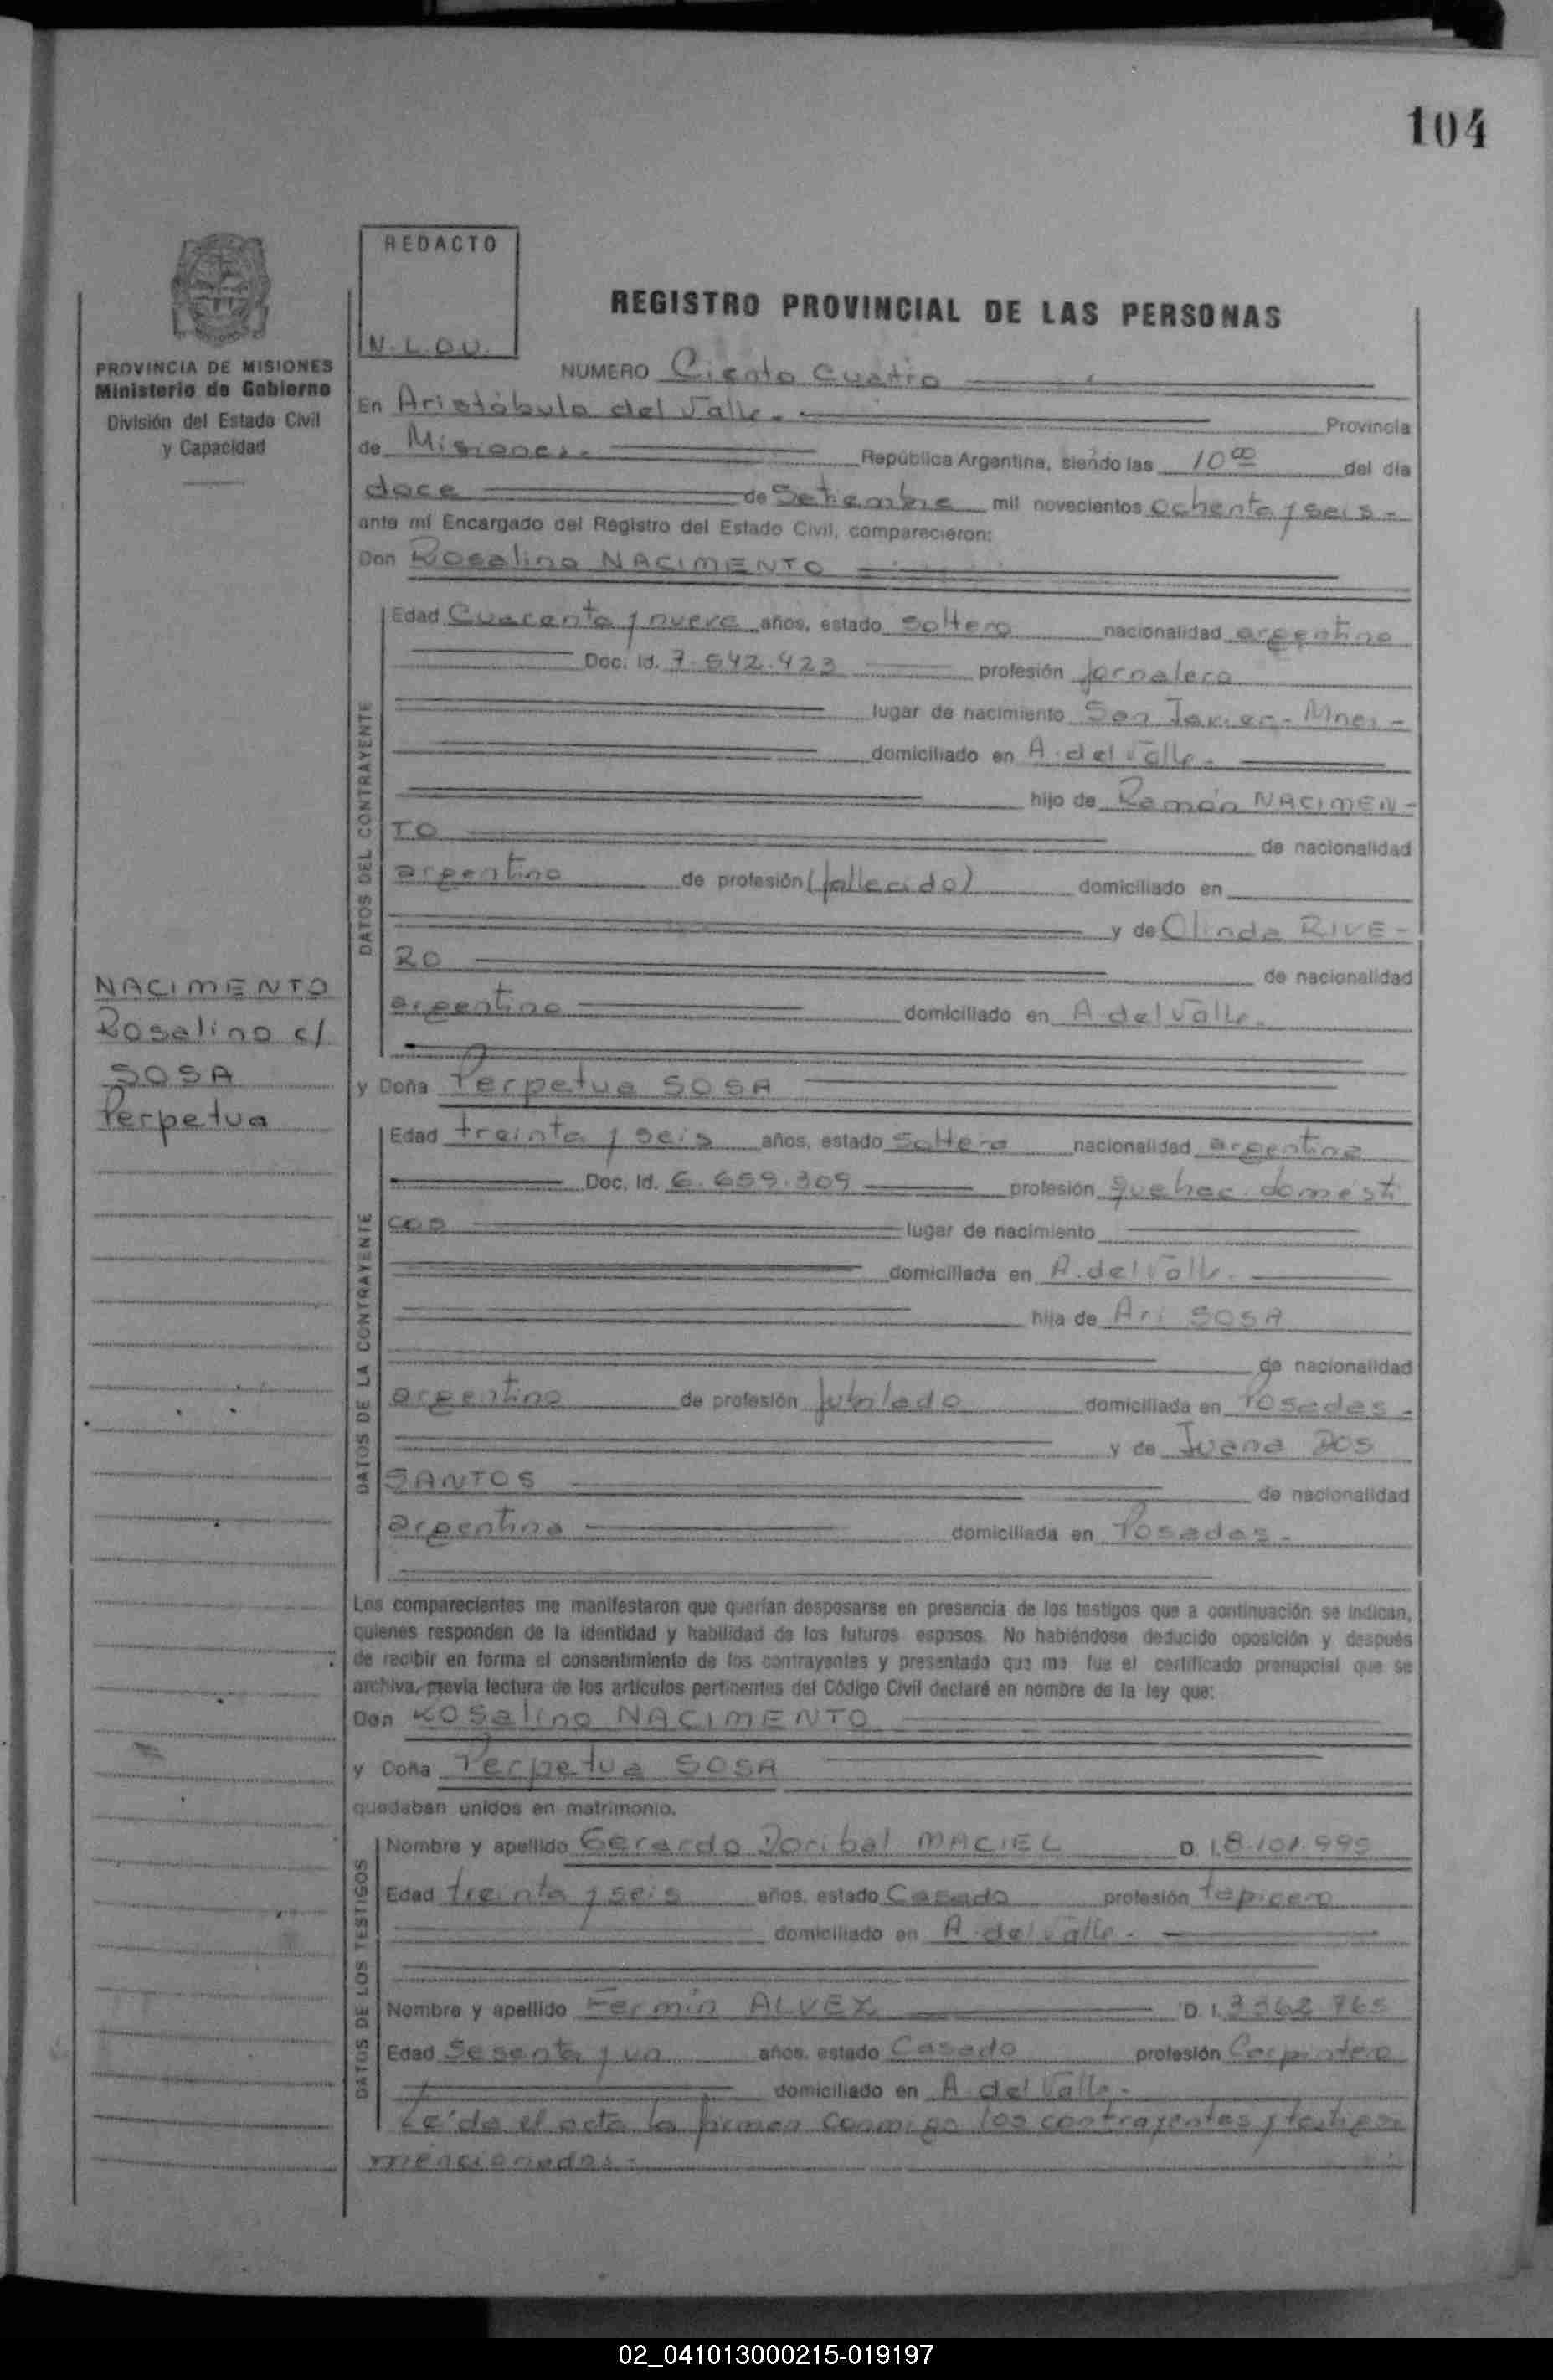 104
REDACTO
N.L.O.U.
REGISTRO PROVINCIAL DE LAS PERSONAS
PROVINCIA DE MISIONES
Ministerio de Gobierno
División del Estado Civil
y Capacidad
NUMERO Ciento Cuatro
En Aristóbulo del Valle.- Provincia
de Misiones.- República Argentina, siendo las 10 00 del día
doce de Setiembre mil novecientos ochenta y seis-
ante mí Encargado del Registro del Estado Civil, comparecieron:
Don Rosalino NACIMENTO
DATOS DEL CONTRAYENTE
Edad Cuarenta y nueve años, estado soltero nacionalidad argentino
Doc. Id. 7.542.423 profesión jornalero
lugar de nacimiento San Javier- Mnes-
domiciliado en A. del Valle.-
hijo de Ramón NACIMEN-
TO de nacionalidad
argentino de profesión (fallecido) domiciliado en
y de Olinda RIVE-
RO de nacionalidad
argentina domiciliado en A del Valle.
y Doña Perpetua SOSA
NACIMENTO
Rosalino c/
SOSA
Perpetua
DATOS DE LA CONTRAYENTE
Edad treinta y seis años, estado Soltera nacionalidad argentina
Doc. Id. 6.659.309 profesión quehac. domésti
cos lugar de nacimiento
domiciliada en A. del Valle.
hija de Ari SOSA
de nacionalidad
argentino de profesión Jubilado domiciliada en Posadas-
y de Juana DOS
SANTOS de nacionalidad
argentina domiciliada en Posadas-
Los comparecientes me manifestaron que querían desposarse en presencia de los testigos que a continuación se indican,
quienes responden de la identidad y habilidad de los futuros esposos. No habiéndose deducido oposición y después
de recibir en forma el consentimiento de los contrayentes y presentado que me fue el certificado prenupcial que se
archiva, previa lectura de los artículos pertinentes del Código Civil declaré en nombre de la ley que:
Don Rosalino NACIMENTO
y Doña Perpetua SOSA
quedaban unidos en matrimonio.
DATOS DE LOS TESTIGOS
Nombre y apellido Gerardo Doribal MACIEL D I. 8.101.995
Edad treinta y seis años, estado Casado profesión tapicero
domiciliado en A. del Valle-
Nombre y apellido Fermín ALVEX D I. 3362765
Edad Sesenta y un años, estado Casado profesión Carpintero
domiciliado en A del Valle.-
Leída el acta la firman conmigo los contrayentes y testigos
mencionados.-
02_041013000215-019197